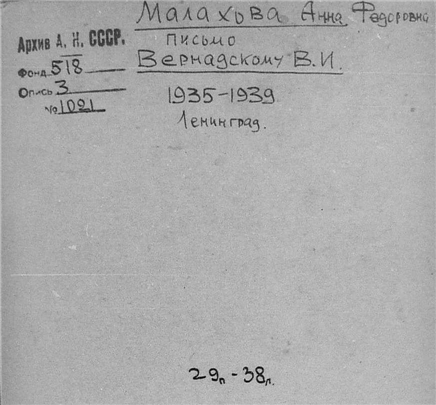 Малахова Анна Федоровна
Архив А. Н. СССР.
Фонд 518
Опись 3
№ 1021
письмо
Вернадскому В.И.
1935-1939
Ленинград.
29п - 38л.